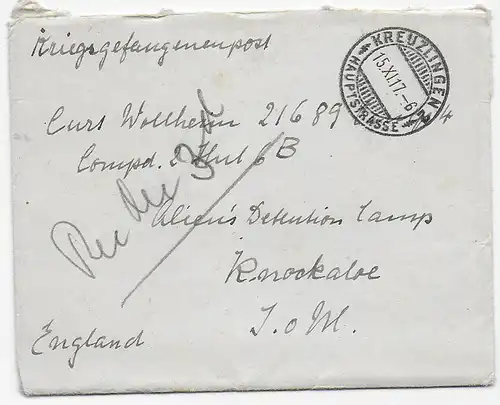 Kriegsgefangenenpost
KREUZLINGEN
15.XI.17.-6
HAUPTSTRASSE
Curt Wollheim 21689 4
Compd. 2 Hut 6B
Alien's Detention Camp
Knockaloe
I.o M.
England